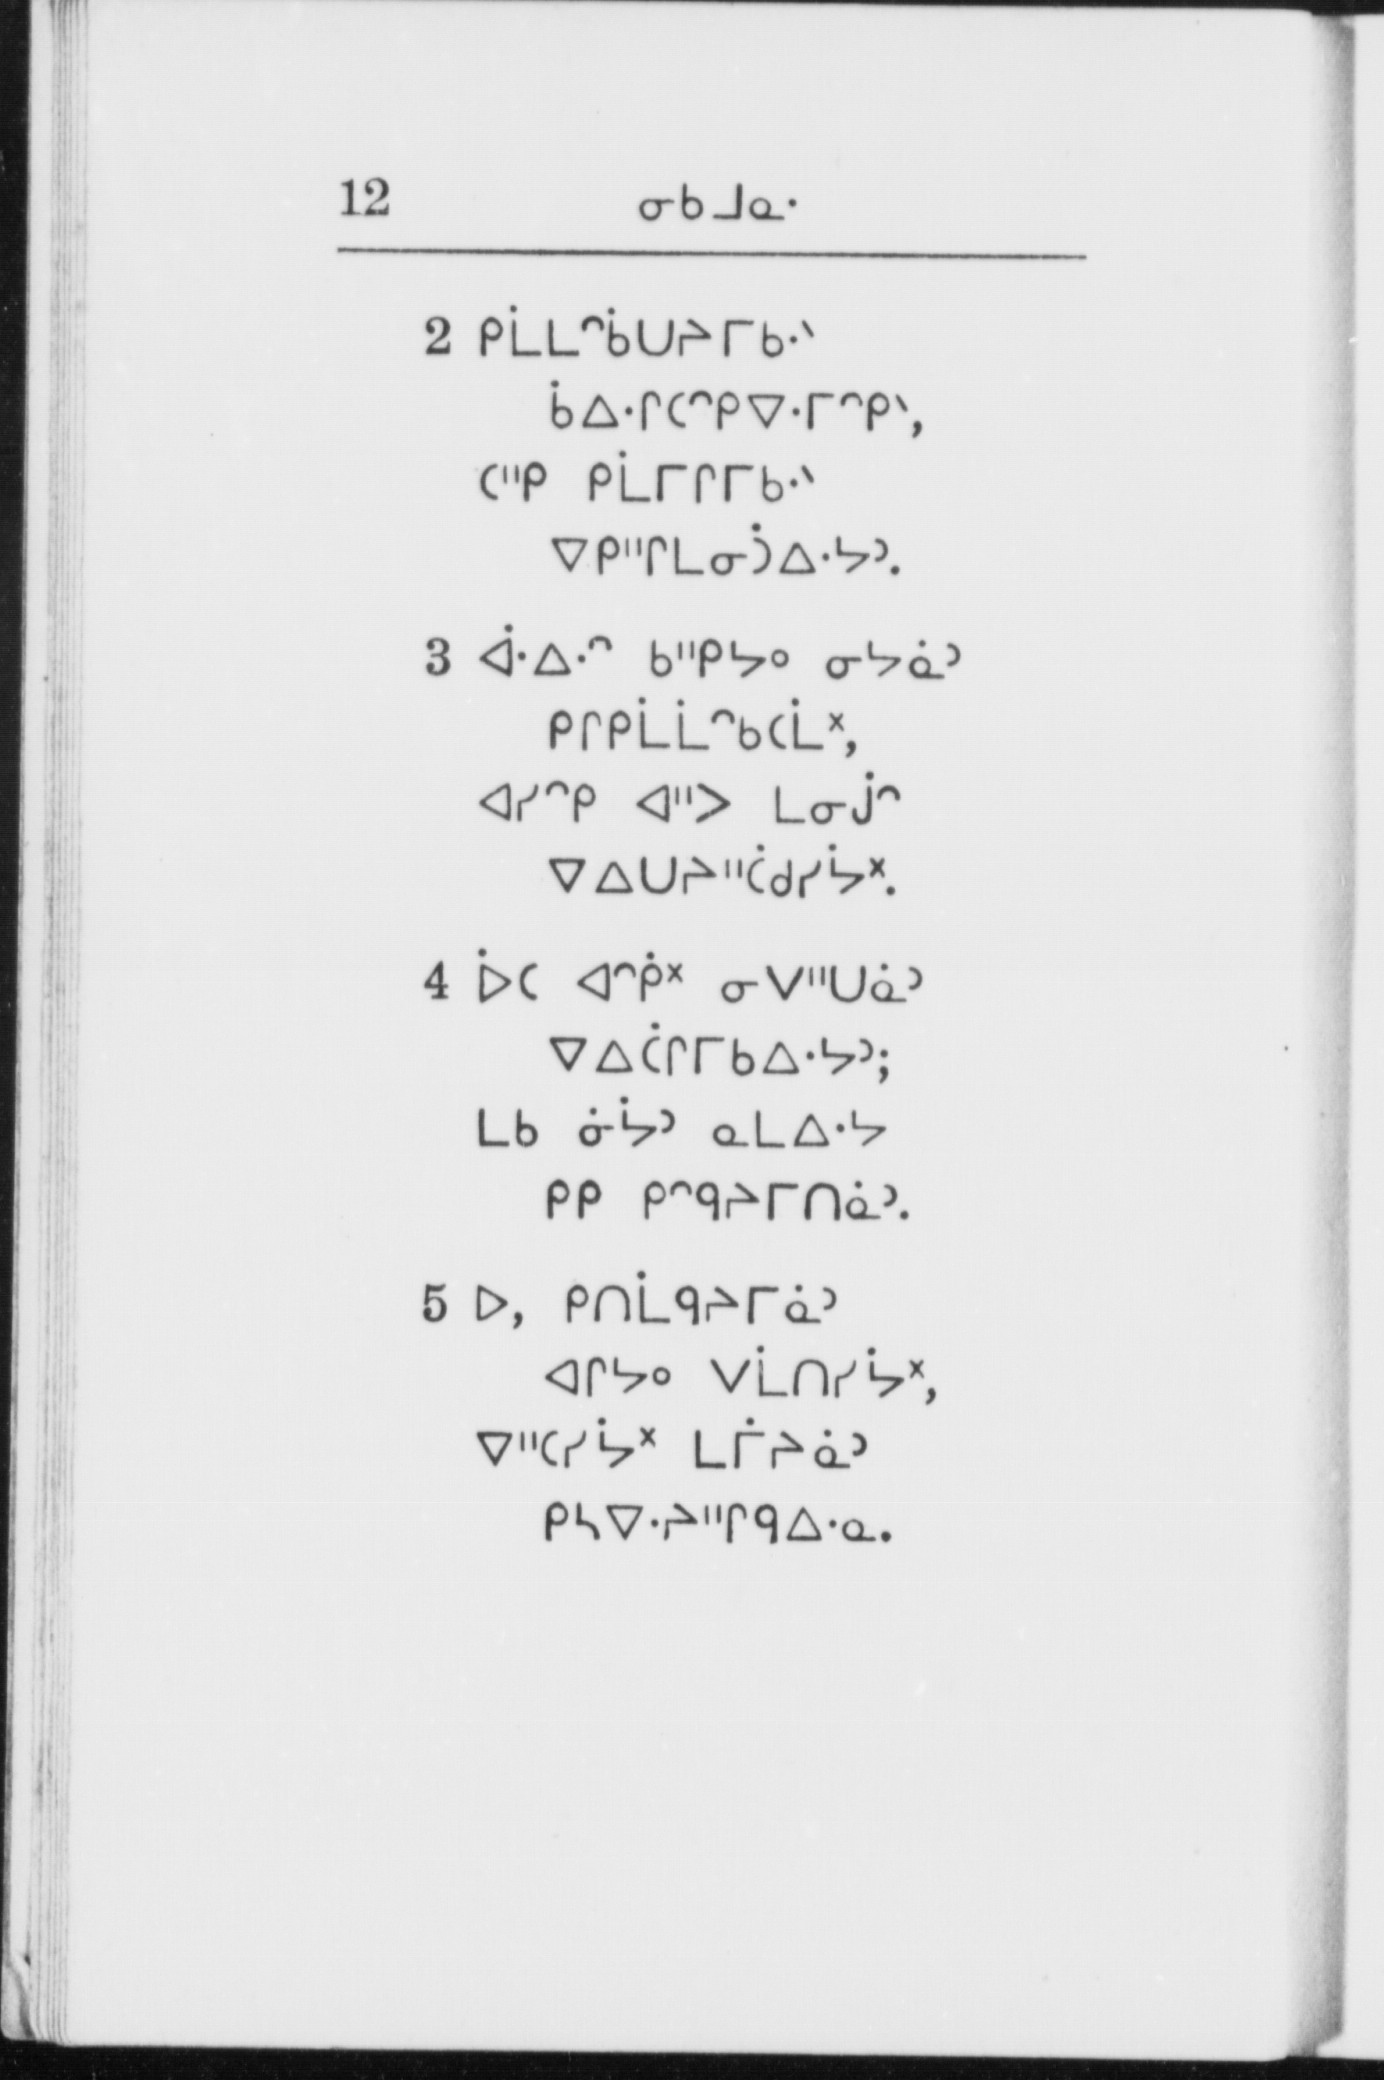 12 ᓂᑲᒧᓇᐧ
2 ᑭᒫᒪᐢᑳᑌᔨᒥᑲᐧᐠ
ᑳᐃᐧᒋᑕᐢᑭᐁᐧᒥᐢᑭᐠ,
ᑕᐦᑭ ᑭᒫᒥᒋᒥᑲᐧᐠ
ᐁᑭᐦᒋᒪᓂᑑᐃᐧᔭᐣ.
3 ᐋᐧᐃᐧᐢ ᑲᐦᑭᔭᐤ ᓂᔭᓈᐣ
ᑭᒋᑭᒫᒫᐢᑲᑕᒫᕽ,
ᐊᓯᐢᑭ ᐊᐦᐳ ᒪᓂᒎᐢ
ᐁᐃᑌᔨᐦᑖᑯᓯᔮᕽ.
4 ᐆᑕ ᐊᐢᑮᕽ ᓂᐯᐦᑌᓈᐣ
ᐁᐃᑖᒋᒥᑲᐃᐧᔭᐣ;
ᒪᑲ ᓃᔮᐣ ᓇᒪᐃᐧᔭ
ᑭᑭ ᑭᐢᑫᔨᒥᑎᓈᐣ.
5 ᐅ, ᑭᑎᒫᑫᔨᒥᓈᐣ
ᐊᒋᔭᐤ ᐯᒫᑎᓯᔮᕽ,
ᐁᐦᑕᓯᔮᕽ ᒪᒦᔨᓈᐣ
ᑭᓴᐁᐧᔨᐦᒋᑫᐃᐧᓇ.